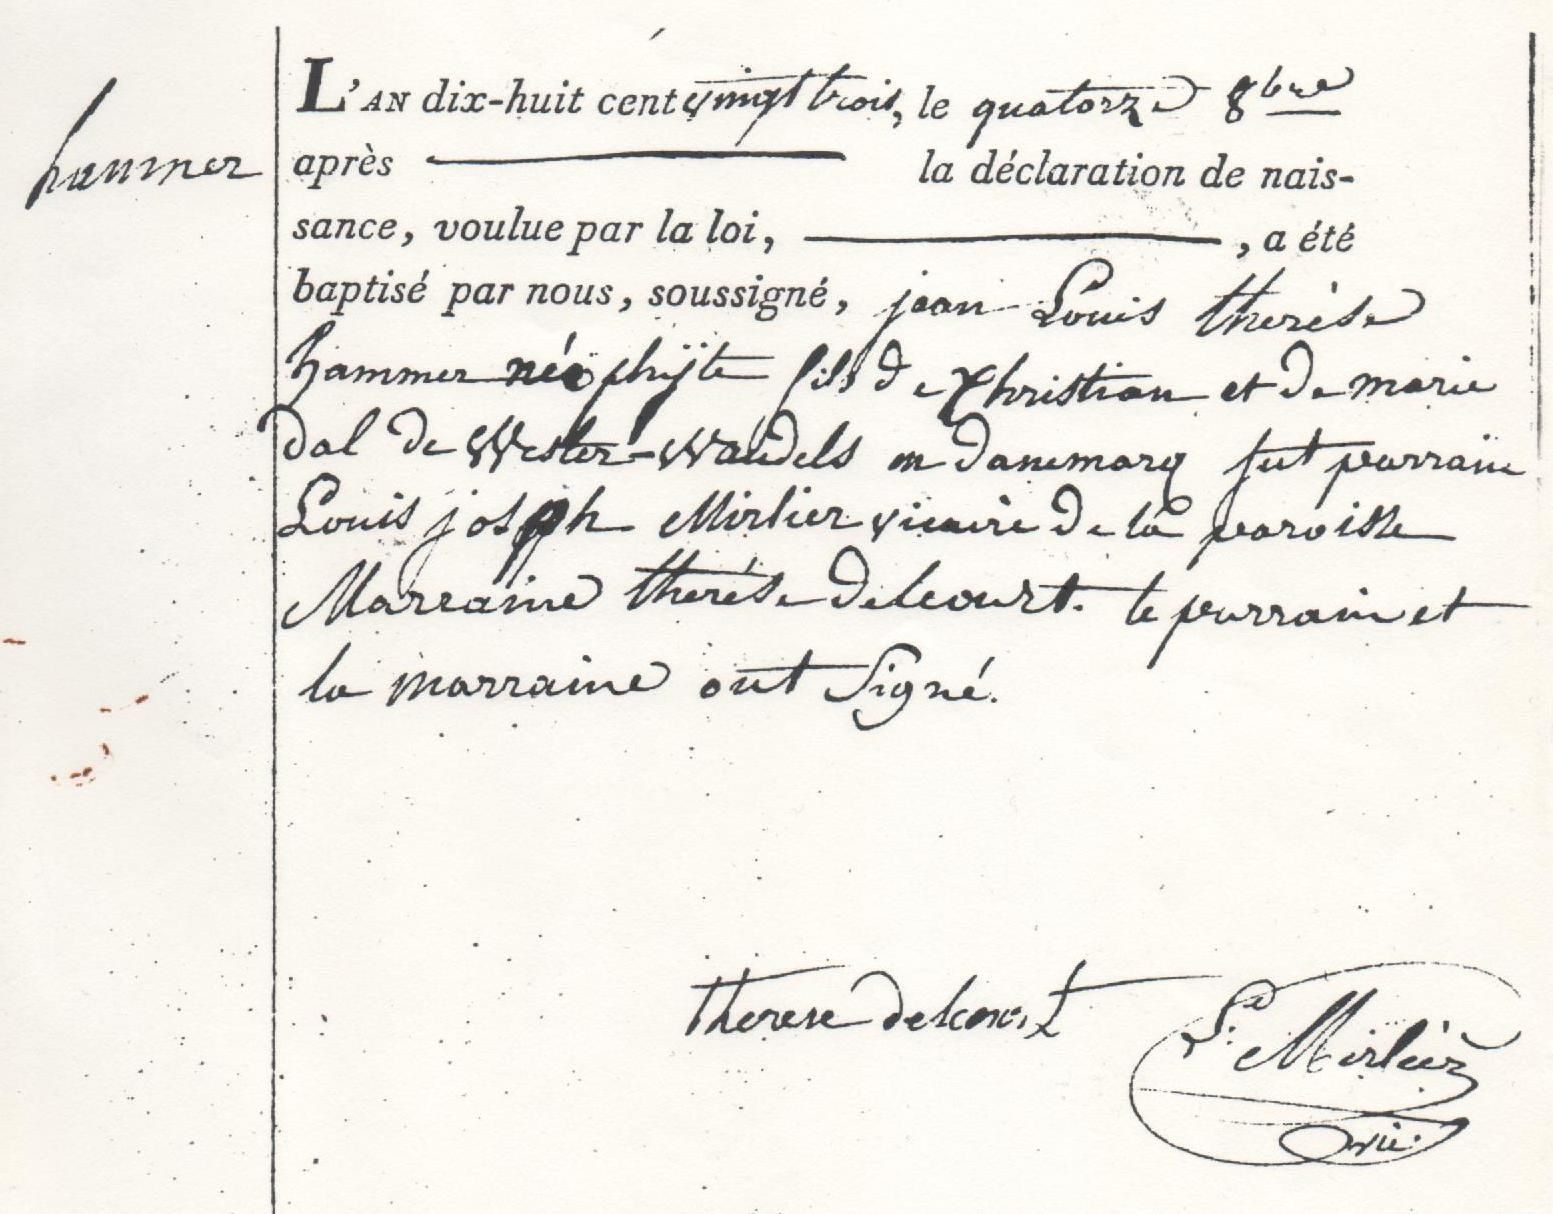 hammer
L'AN dix-huit cent vingt trois, le quatorze 8bre
après la déclaration de nais-
sance, voulue par la loi, , a été
baptisé par nous, soussigné, jean Louis therése
hammer néophÿte fils de Christian et de marie
dal de Wester-Wandels en danemarq fut parrain
Louis joseph Mirlier vicaire de la paroisse
Marraine therése Delcourt. le parrain et
la marraine ont Signé.
therese delcourt
Mirlier
vic: